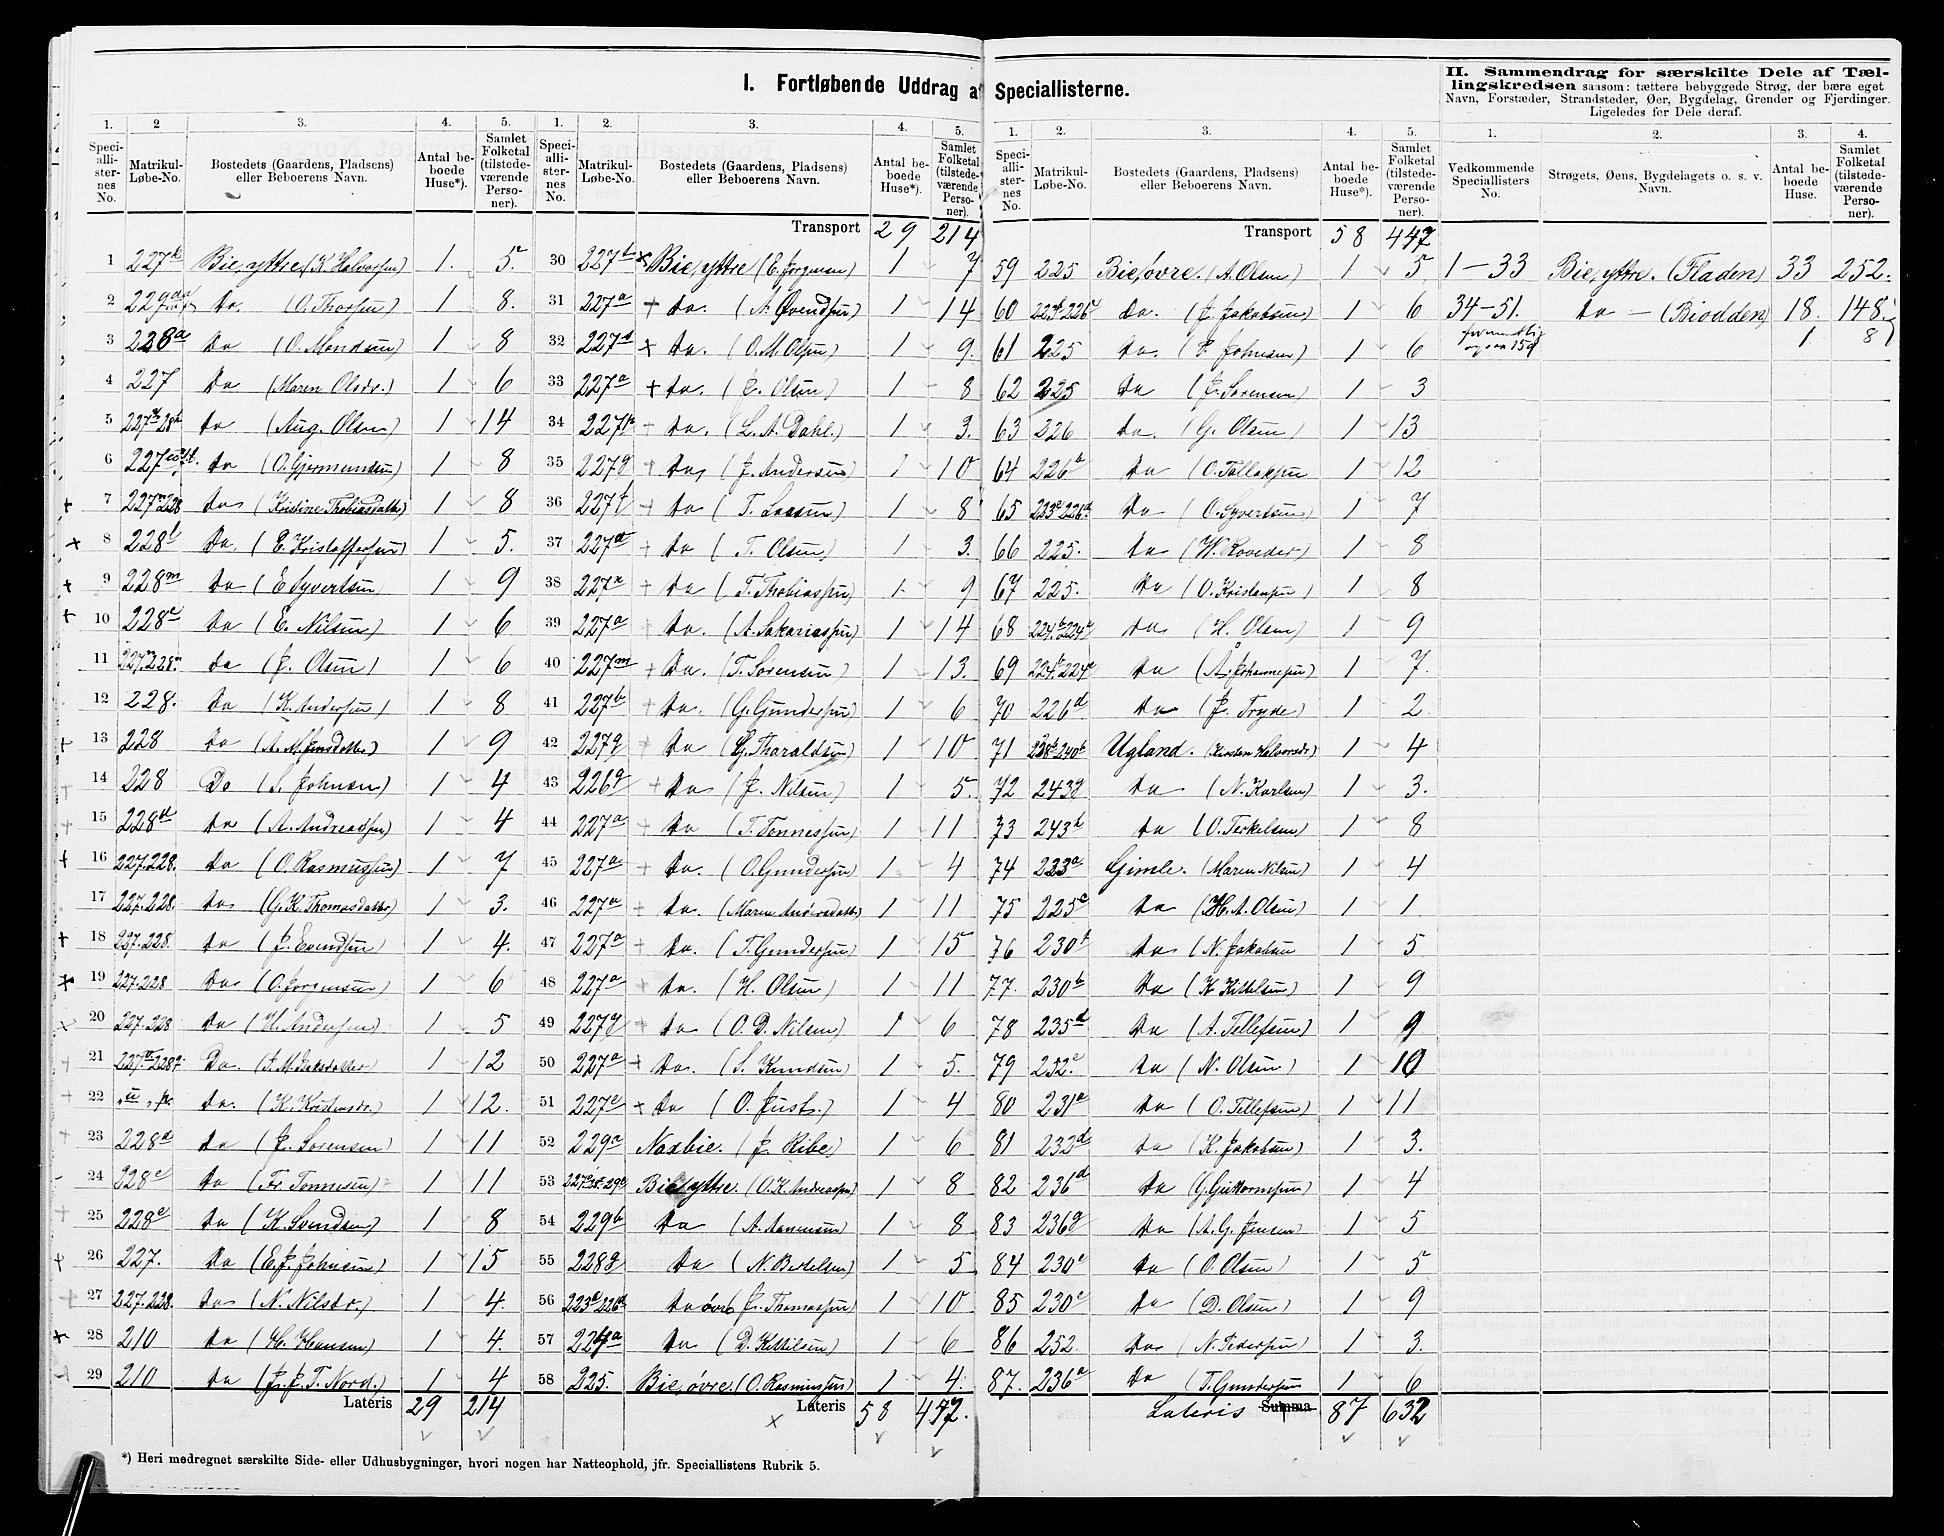 I. Fortløbende Uddrag af Speciallisterne.
II. Sammendrag for særskilte Dele af Tællingskredsen saasom: tættere bebyggede Strøg, der bære eget
Navn, Forstæder, Strandsteder, Øer, Bygdelag, Grender og Fjerdinger.
Ligeledes for Dele deraf.
1. Speciallisternes No. 2 Matrikul-Løbe-No. 3. Bostedets (Gaardens, Pladsens) eller Beboerens Navn. 4. Antal beboede Huse*). 5. Samlet Folketal (tilstedeværende Personer).
1 227k Bie, yttre (K Halvorsen) 1. 5.
2 229 Do. (O. Thorsen) 1 8.
3 228a Do (O. Mondsen) 1 8
4 227 Do (Maren Olsdr.) 1 6
5 Do (Aug. Olsen) 1 14
6 227 Do (O. Gjermundsen) 1 8
7 227n228 Do (Kristine Thobiasdatter) 1 8
8 228l Do. (E. Kristoffersen) 1 5.
9 228m Do (E Syvertsen) 1 9
10 228e Do (E. Nilsen) 1 6
11 Do (J. Olsen) 1 6
12 228. Do (K. Andersen) 1 8
13 228 Do (A. M. Jensdatter) 1 9
14 228 Do (S. Johnsen) 1 4
15 228d Do (A. Andreassen) 1 4
16 227.228. Do (O. Rasmussen) 1 7
17 227.228. Do (G. K. Thomasdatter) 1 3.
18 227.228. Do (J. Evendsen) 1 4.
19 227.228 Do (O. Jorgensen) 1 6
20 227.228 Do (H. Andersen) 1 5
21 Do. 1 12
22 Do. (K. Kristensdr.) 1 12.
23 228d Do (J. Sorensen) 1 11
24 228c Do (Fr. Tonnesen) 1 11
25 228c Do (K. Svendsen) 1 8
26 227. Do (E. J. Johnsen) 1 15
27 227.228. Do (N. Nilsdr.) 1 4.
28 210 Do (H. Hansen) 1 4.
29 210 Do (J. J. T. Nord.) 1 4
Lateris 29 214
1. Speciallisternes No. 2. Matrikul-Løbe-No. 3. Bostedets (Gaardens, Pladsens) eller Beboerens Navn. 4. Antal beboede Huse*). 5. Samlet Folketal (tilstedeværende Personer).
Transport 29 214
30 227 Bie, yttre (E. Jorgensen) 1 7
31 227a Do. (A. Øvendsen) 1 14
32 227d Do. (O. M. Olsen) 1 9.
33 227a Do. (J. Olsen) 1 8
34 227 Do. (L. A. Dahl.) 1 3.
35 227g Do, (J. Andersen) 1 10
36 227f Do (T. Larsen) 1 8
37 227a Do (T. Olsen) 1 3.
38 227x Do (T. Thobiassen) 1. 9
39 227a Do. (A. Sakariassen) 1 14
40 227m Do. (T. Sorensen) 1 13.
41 227b Do. (G. Gundersen) 1 6
42 227g Do (G. Tharaldsen) 1 10
43 226g Do (J. Nilsen) 1 5.
44 227a Do (T. Tonnesen) 1 11
45 227a Do. (O. Gundersen) 1 4
46 227a Do. (Maren Andersdatter) 1 11
47 227a Do. (T. Gundersen) 1 15
48 227a Do. (H. Olsen) 1 11
49 227g Do (O. D. Nilsen) 1 6
50 227a Do. (S. Knudsen) 1 5.
51 227e Do (O. Just.) 1 4
52 229a Naxbie. (J. Ribe) 1 6
53 Bie, yttre. (O. K. Andreassen) 1 8
54 229b Do (A. Aanensen) 1 8
55 228g Do (N. Bertelsen) 1 5
56 Do øvre (J. Thomassen) 1 10
57 224a Do (D. Kittilsen) 1 6
58 225. Bie, øvre. (O. Rasmussen) 1 4.
Lateris 58 447.
1. Speciallisternes No. 2. Matrikul-Løbe-No. 3. Bostedets (Gaardens, Pladsens) eller Beboerens Navn. 4. Antal beboede Huse*). 5. Samlet Folketal (tilstedeværende Personer).
Transport 58 447
59 225 Bie, øvre. (A. Olsen) 1 5
60 Do. (J. Jakobsen) 1 6
61 225 Do. (P. Johnsen) 1 6
62 225 Do (J. Sorensen) 1 3
63 226 Do. (G. Olsen) 1 13
64 226b Do (O. Tallaksen 1 12
65 Do (O. Syvertsen) 1 7
66 225. Do (W. Roveder) 1 8
67 225. Do (O. Kristensen) 1 8
68 Do (H. Olsen) 1 9
69 Do (A. Johannesen) 1 7.
70 226d Do (J. Tryde) 1 2
71 238b 240b Ugland. (Kirsten Halvorsdr.) 1 4
72 243g Do (N. Karlsen) 1 3.
73 243h Do (O. Terkelsen) 1 8
74 223a Gimle. (Maren Nilsen) 1 4
75 225c Do (H. A. Olsen) 1 1
76 230b Do (N. Jakobsen 1 5
77. 230b Do (K Kittelsen) 1 9
78 235d Do (A. Tellefsen) 1 9
79 252c Do (N. Olsen) 1 10
80 231a Do (O. Tellefsen) 1 11
81 232d Do (K. Jakobsen) 1 3.
82 236d Do (G. Guttormsen) 1 4
83 236g Do (A. G. Jensen) 1 5
84 230c Do (O. Olsen) 1 5
85 230c Do (D. Olsen) 1 9
86 252. Do (N. Pedersen) 1 3.
87. 236a Do (T. Gundersen 1 6
Lateris Summa 87 632
1. Vedkommende Speciallisters No. 2. Strøgets, Øens, Bygdelagets o. s. v. Navn. 3. Antal beboede Huse. 4. Samlet Folketal (tilstedeværende Personer).
1-33 Bie, yttre. (Fladen) 33 252.
34-51. Do - (Biodden) 18. 148.
1 8
*) Heri medregnet særskilte Side- eller Udhusbygninger, hvori nogen har Natteophold, jfr. Speciallistens Rubrik 5.